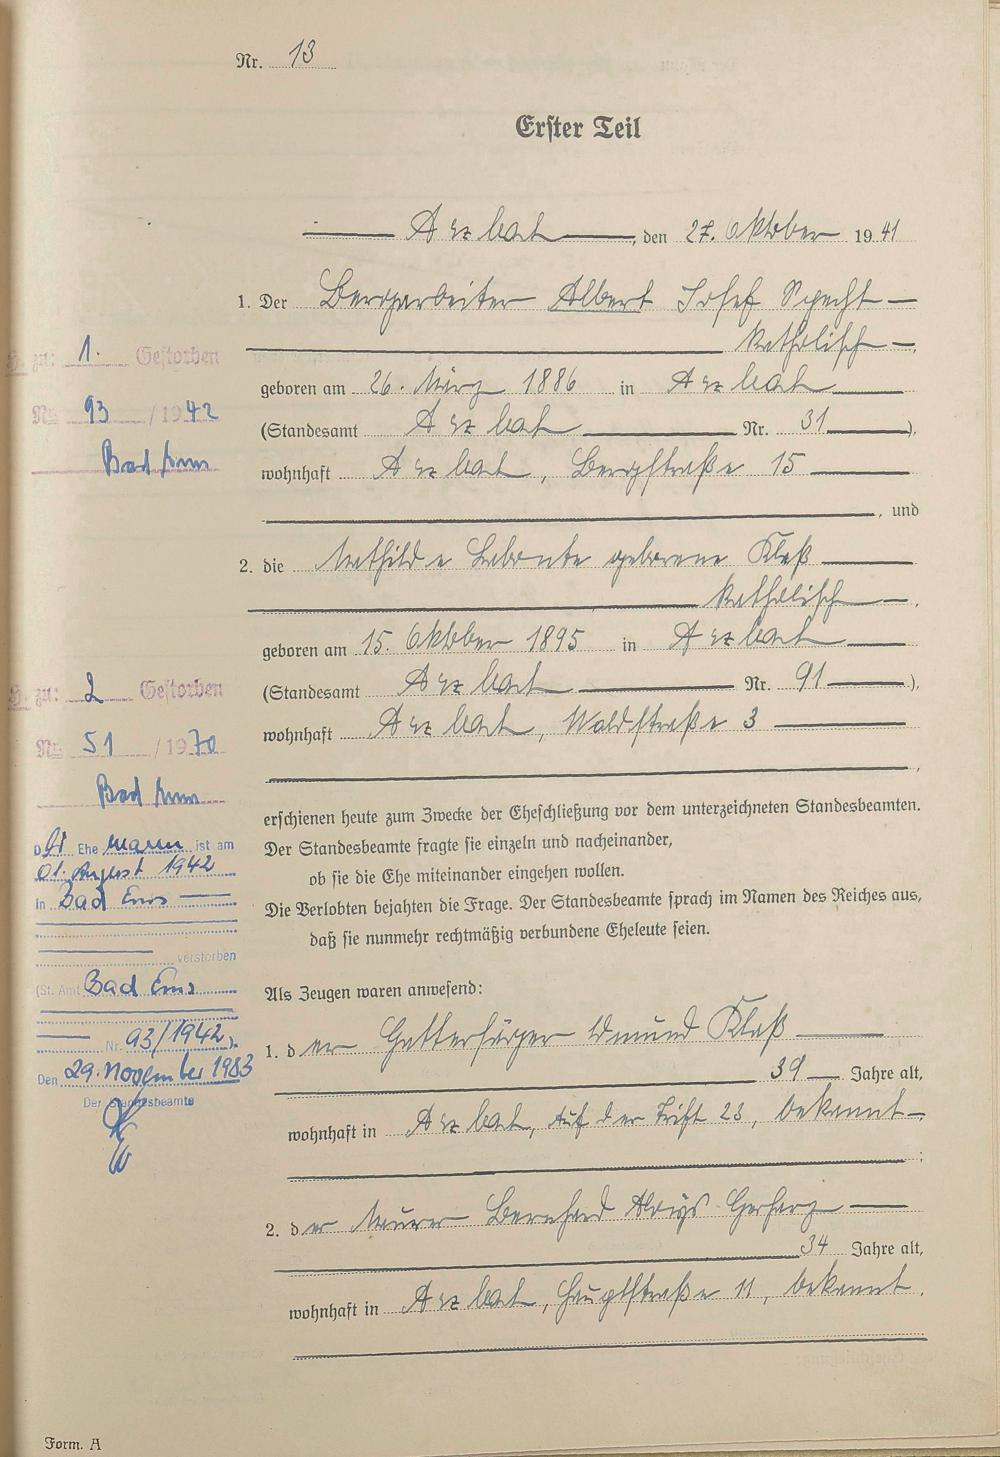 Nr. 13
Erster Teil
Arzbach, den 27. Oktober 1941
1. Der Bergarbeiter Albert Josef Specht
katholisch,
geboren am 26. März 1886 in Arzbach
(Standesamt Arzbach Nr. 31),
wohnhaft Arzbach, Bergstraße 15
, und
2. die Mathilde Labonte geborene Klaß
katholisch,
geboren am 15. Oktober 1895 in Arzbach
(Standesamt Arzbach Nr. 91),
wohnhaft Arzbach, Waldstraße 3
,
erschienen heute zum Zwecke der Eheschließung vor dem unterzeichneten Standesbeamten.
Der Standesbeamte fragte sie einzeln und nacheinander,
ob sie die Ehe miteinander eingehen wollen.
Die Verlobten bejahten die Frage. Der Standesbeamte sprach im Namen des Reiches aus,
daß sie nunmehr rechtmäßig verbundene Eheleute seien.
Als Zeugen waren anwesend:
1. der Edmund Klaß
39 Jahre alt,
wohnhaft in Arzbach, Auf der Trift 23, bekannt
;
2. der Maurer Bernhard Aloys Gerharz
34 Jahre alt,
wohnhaft in Arzbach, Hauptstraße 11, bekannt.
H. zu: 1. Gestorben
Nr. 93 / 1942
Bad Ems
H. zu: 2 Gestorben
Nr. 51 / 1970
Bad Ems
Der Ehemann ist am
01. August 1942
in Bad Ems
verstorben
(St. Amt Bad Ems
Nr. 93/1942).
Den 29. November 1983
Der Standesbeamte
Form. A